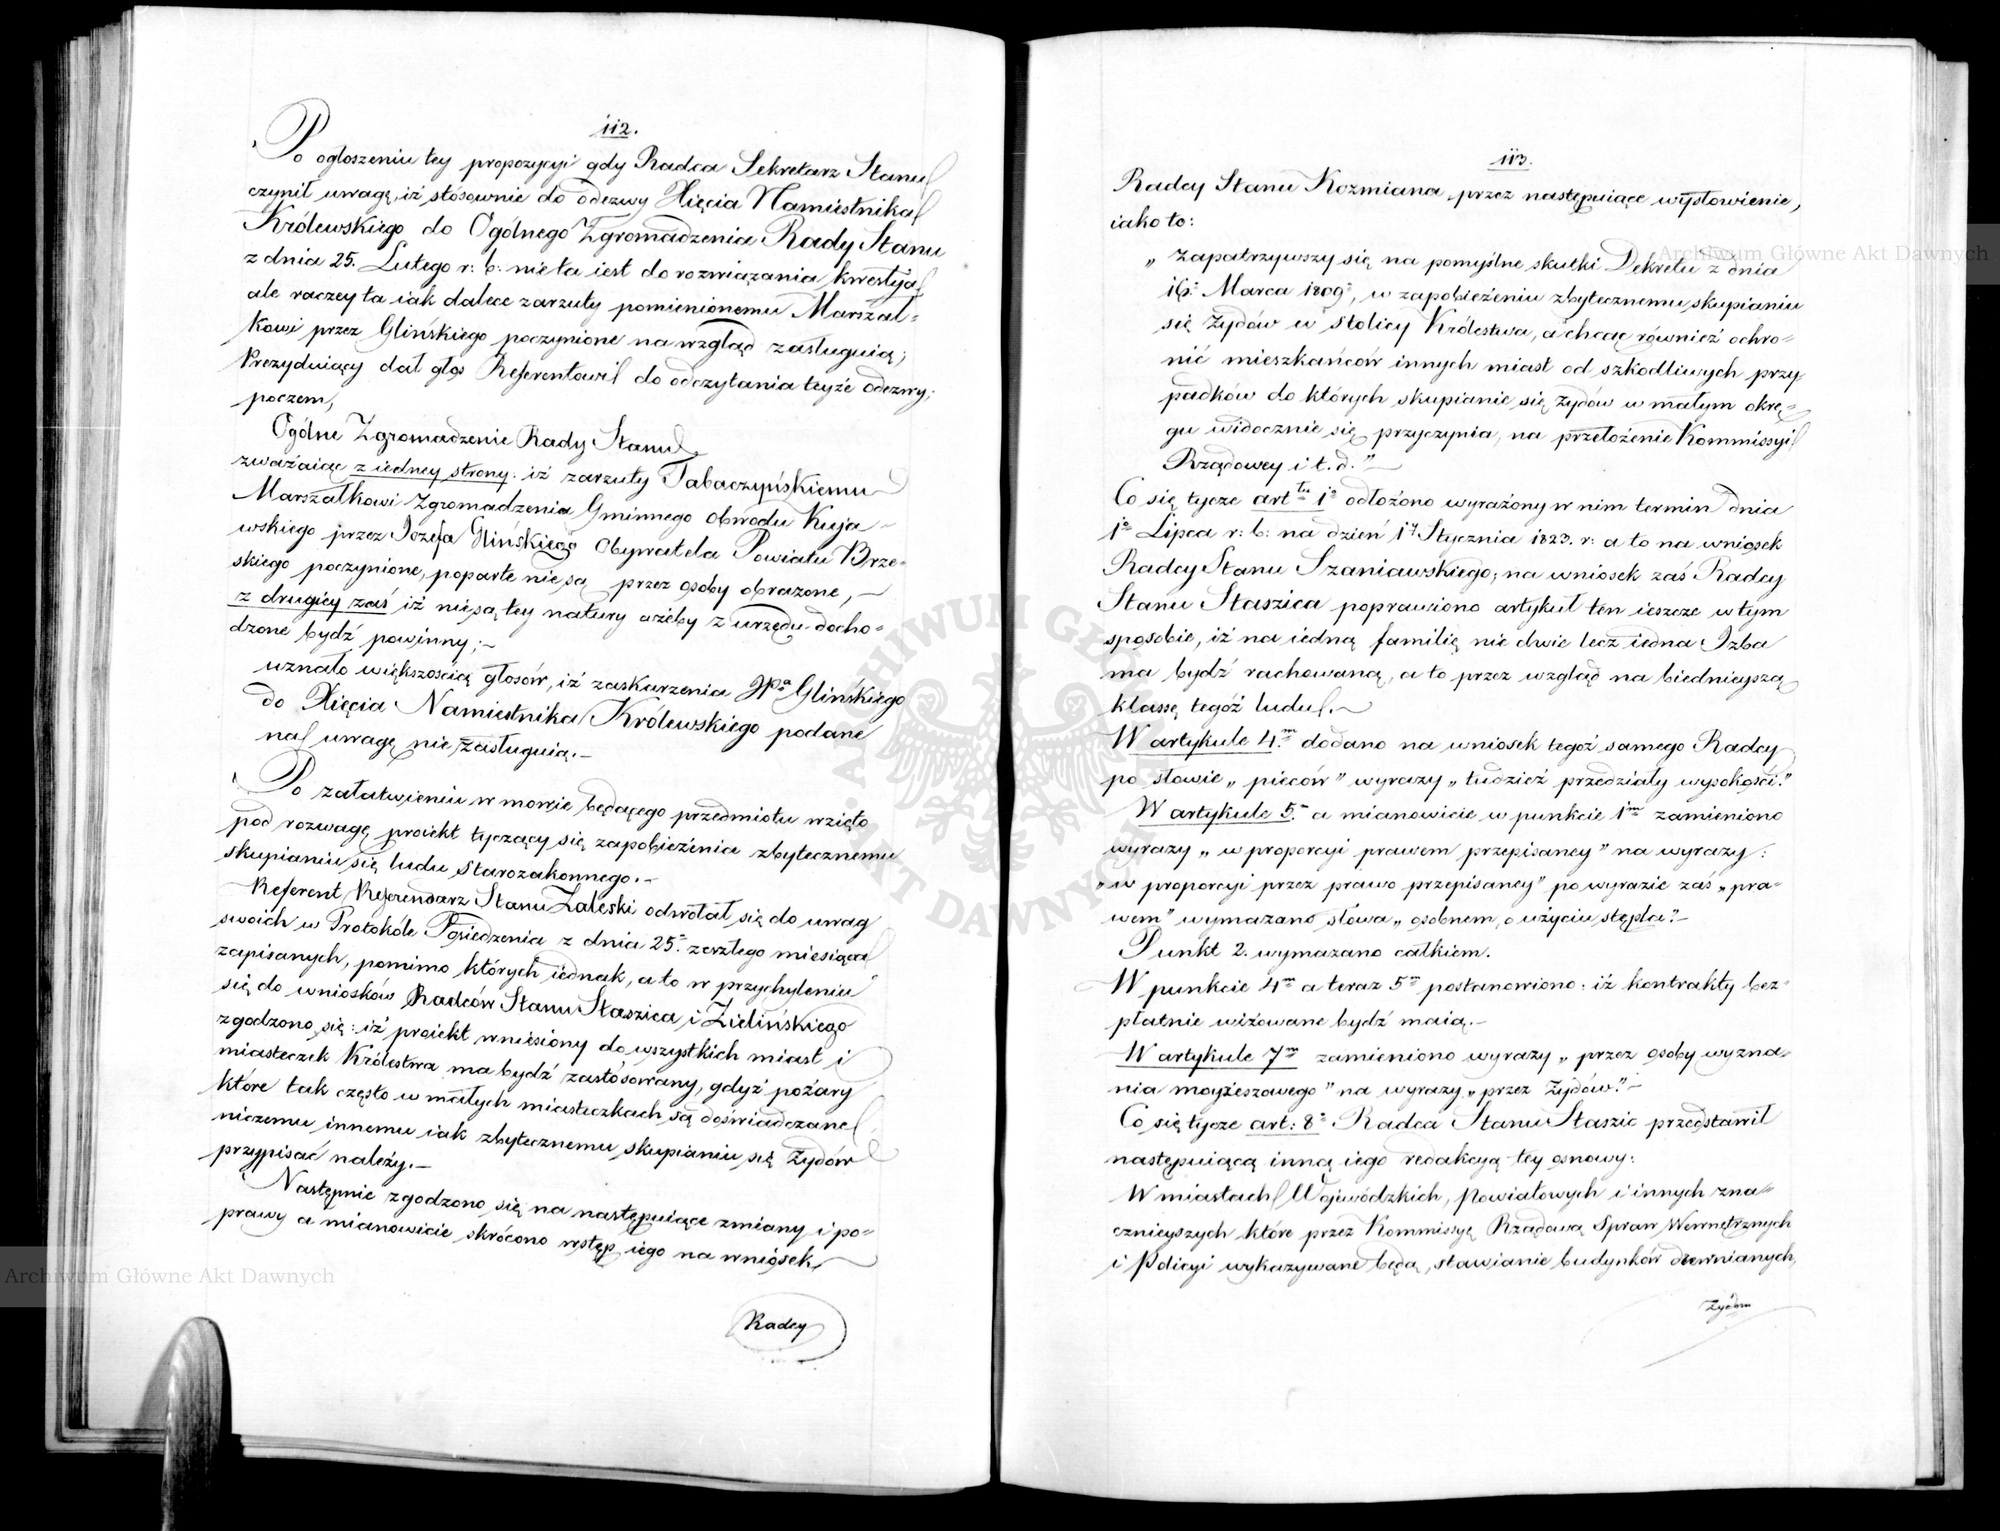 112.
Po ogłoszeniu tey propozycyi gdy Radca Sekretarz Stanu
czynił uwagę, iż stósownie do odezwy Xięcia Namiestnika
Królewskiego do Ogólnego Zgromadzenia Rady Stanu
z dnia 25. Lutego r: b: nie ta iest do rozwiązania kwestya
ale raczey ta iak dalece zarzuty pomienionemu Marszał=
kowi przez Glińskiego poczynione na wzgląd zasługuią;
Prezyduiący dał głos Referentowi do odczytania teyże odezwy;
poczem,
Ogólne Zgromadzenie Rady Stanu
zważaiąc z iedney strony: iż zarzuty Tabaczyńskiemu
Marszałkowi Zgromadzenia Gminnego Obwodu Kuja-
wskiego przez Józefa Glińskiego Obywatela Powiatu Brze-
skiego poczynione, poparte nie są przez osoby obrażone, –
z drugiey zaś iż nie są tey natury ażeby z urzędu docho=
dzone bydź powinny; –
uznało większością głosów, iż zaskarzenia JPa Glińskiego
do Xięcia Namiestnika Królewskiego podane
na uwagę nie zasługuią. –
Po załatwieniu w mowie będącego przedmiotu wzięto
pod rozwagę proiekt tyczący się zapobieżenia zbytecznemu
skupianiu się ludu Starozakonnego. –
Referent Referendarz Stanu Zaleski odwołał się do uwag
swoich w Protokóle Posiedzenia z dnia 25º zeszłego miesiąca
zapisanych, pomimo których iednak, a to w przychyleniu
się do wniosków Radców Stanu Staszica i Zielińskiego
zgodzono się: iż proiekt wniesiony do wszystkich miast i
miasteczek Królestwa ma bydź zastósowany, gdyż pożary
które tak często w małych miasteczkach są doświadczane
niczemu innemu iak zbytecznemu skupianiu się Żydów
przypisać należy. –
Następnie zgodzono się na następuiące zmiany i po=
prawy a mianowicie skrócono wstęp iego na wniosek
Radcy
113.
Radcy Stanu Kozmiana, przez następuiące wysłowienie,
iako to:
„ Zapatrzywszy się na pomyślne skutki Dekretu z dnia
16º Marca 1809º, w zapobieżeniu zbytecznemu skupianiu
się Żydów w Stolicy Królestwa, a chcąc również ochro=
nić mieszkańców innych miast od szkodliwych przy-
padków do których skupianie się Żydów w małym okrę=
gu widocznie się przyczynia, na przełożenie Kommissyi
Rządowey i t. d." –
Co się tycze arttu 1º odłożono wyrażony w nim termin dnia
1º Lipca r: b: na dzień 1y Stycznia 1823. r: a to na wniosek
Radcy Stanu Szaniawskiego; na wniosek zaś Radcy
Stanu Staszica poprawiono artykuł ten ieszcze w tym
sposobie, iż na iedną familię nie dwie lecz iedna Izba
ma bydź rachowaną, a to przez wzgląd na biednieyszą
klassę tegóż ludu. –
W artykule 4m dodano na wniosek tegoż samego Radcy
po słowie „ pieców" wyrazy „ tudzież przedziały wysokości."
W artykule 5. a mianowicie w punkcie 1m zamieniono
wyrazy „ w proporcyi prawem przepisaney" na wyrazy:
„ w proporcyi przez prawo przepisaney" po wyrazie zaś „ pra-
wem" wymazano słowa „ osobnem, o użyciu stępla." –
Punkt 2. wymazano całkiem.
W punkcie 4m a teraz 5m postanowiono: iż kontrakty bez=
płatnie wizowane bydź maią. –
W artykule 7m zamieniono wyrazy „ przez osoby wyzna=
nia moyżeszowego" na wyrazy „ przez Żydów." –
Co się tycze art: 8º Radca Stanu Staszic przedstawił
następuiącą inną iego redakcyą tey osnowy:
W miastach Woiwódzkich, Powiatowych i innych zna=
cznieyszych które przez Kommissyę Rządową Spraw Wewnętrznych
i Policyi wykazywane będą, stawianie budynków drewnianych,
Żydom
Archiwum Główne Akt Dawnych
Archiwum Główne Akt Dawnych
ARCHIWUM GŁÓWNE AKT DAWNYCH